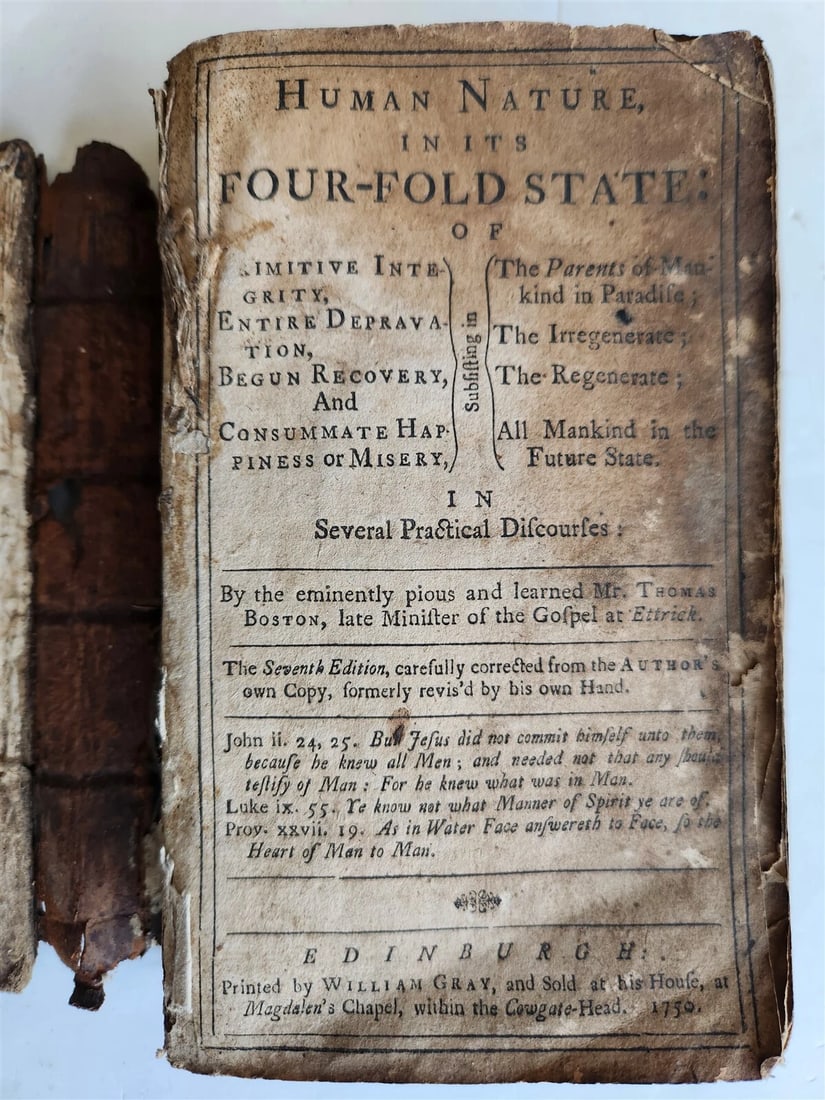 HUMAN NATURE,
IN ITS
FOUR-FOLD STATE:
OF
RIMITIVE INTE-
GRITY,
ENTIRE DEPRAVA-
TION,
BEGUN RECOVERY,
And
CONSUMMATE HAP-
PINESS or MISERY,
Subſiſting in
The Parents of Man-
kind in Paradiſe;
The Irregenerate;
The Regenerate;
All Mankind in the
Future State.
IN
Several Practical Diſcourſes:
By the eminently pious and learned Mr. THOMAS
BOSTON, late Miniſter of the Goſpel at Ettrick.
The Seventh Edition, carefully corrected from the AUTHOR'S
own Copy, formerly revis'd by his own Hand.
John ii. 24, 25. But Jeſus did not commit himſelf unto them,
becauſe he knew all Men; and needed not that any ſhould
teſtify of Man: For he knew what was in Man.
Luke ix. 55. Ye know not what Manner of Spirit ye are of.
Prov. xxvii. 19. As in Water Face anſwereth to Face, ſo the
Heart of Man to Man.
EDINBURGH:
Printed by WILLIAM GRAY, and Sold at his Houſe, at
Magdalen's Chapel, within the Cowgate-Head. 1750.